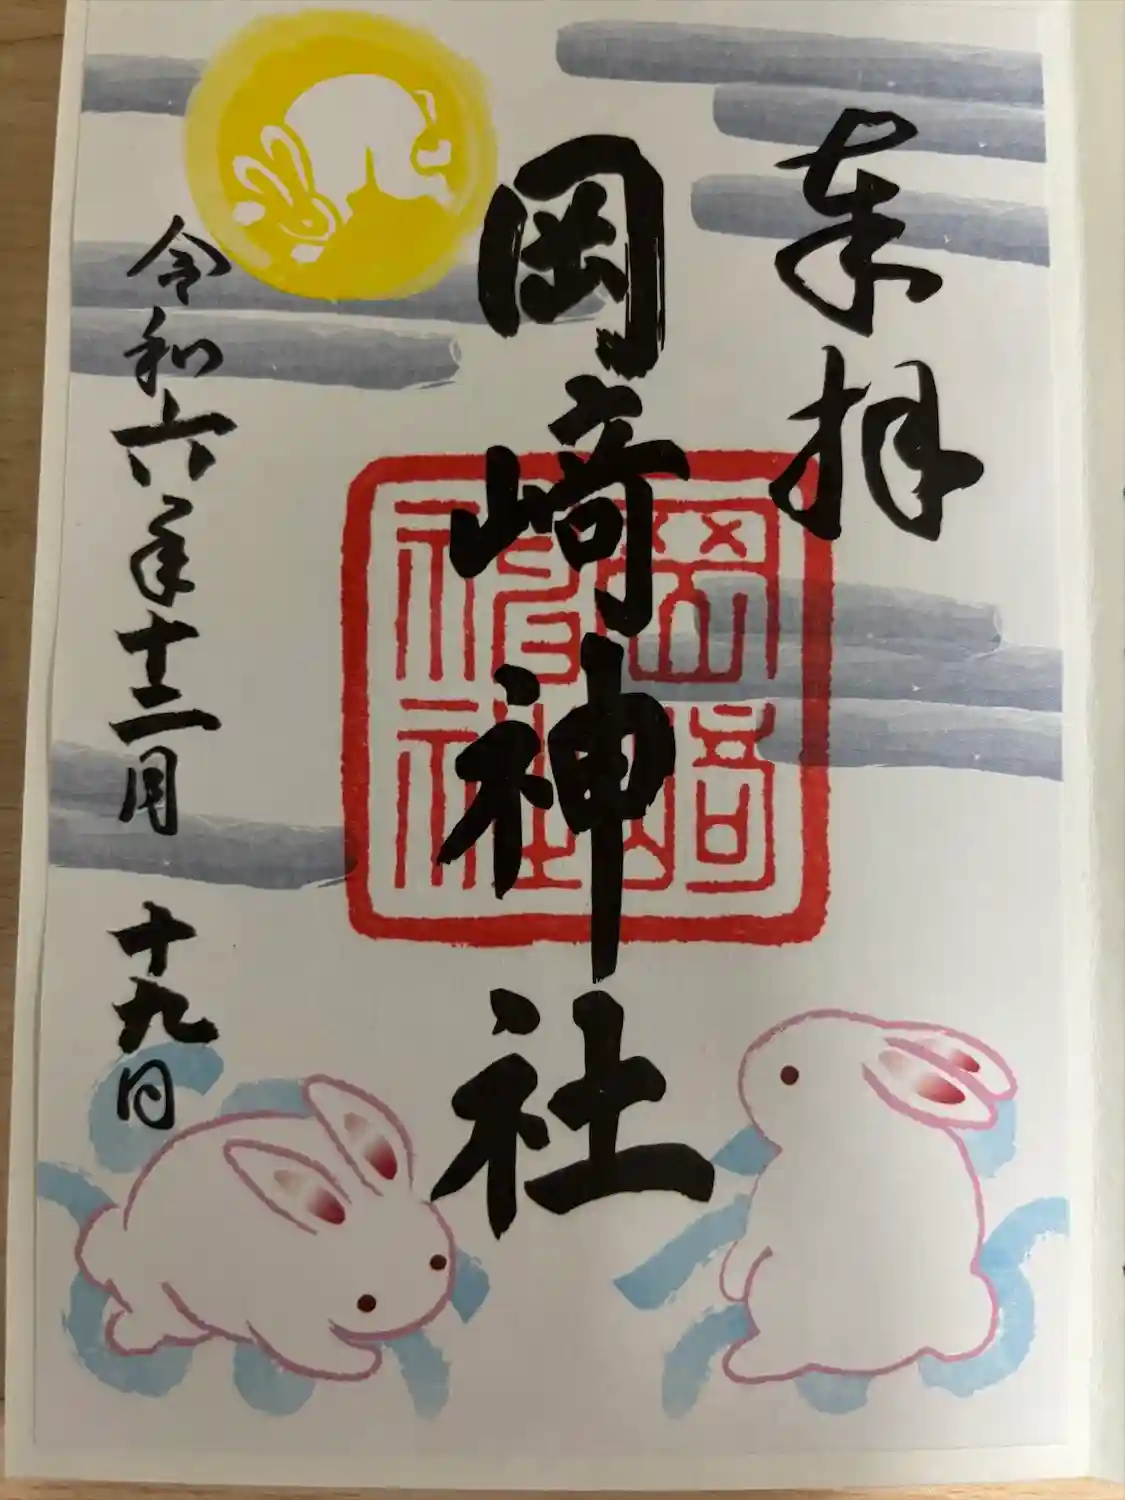 奉拝
岡﨑神社
岡﨑神社
令和六年十二月 十九日